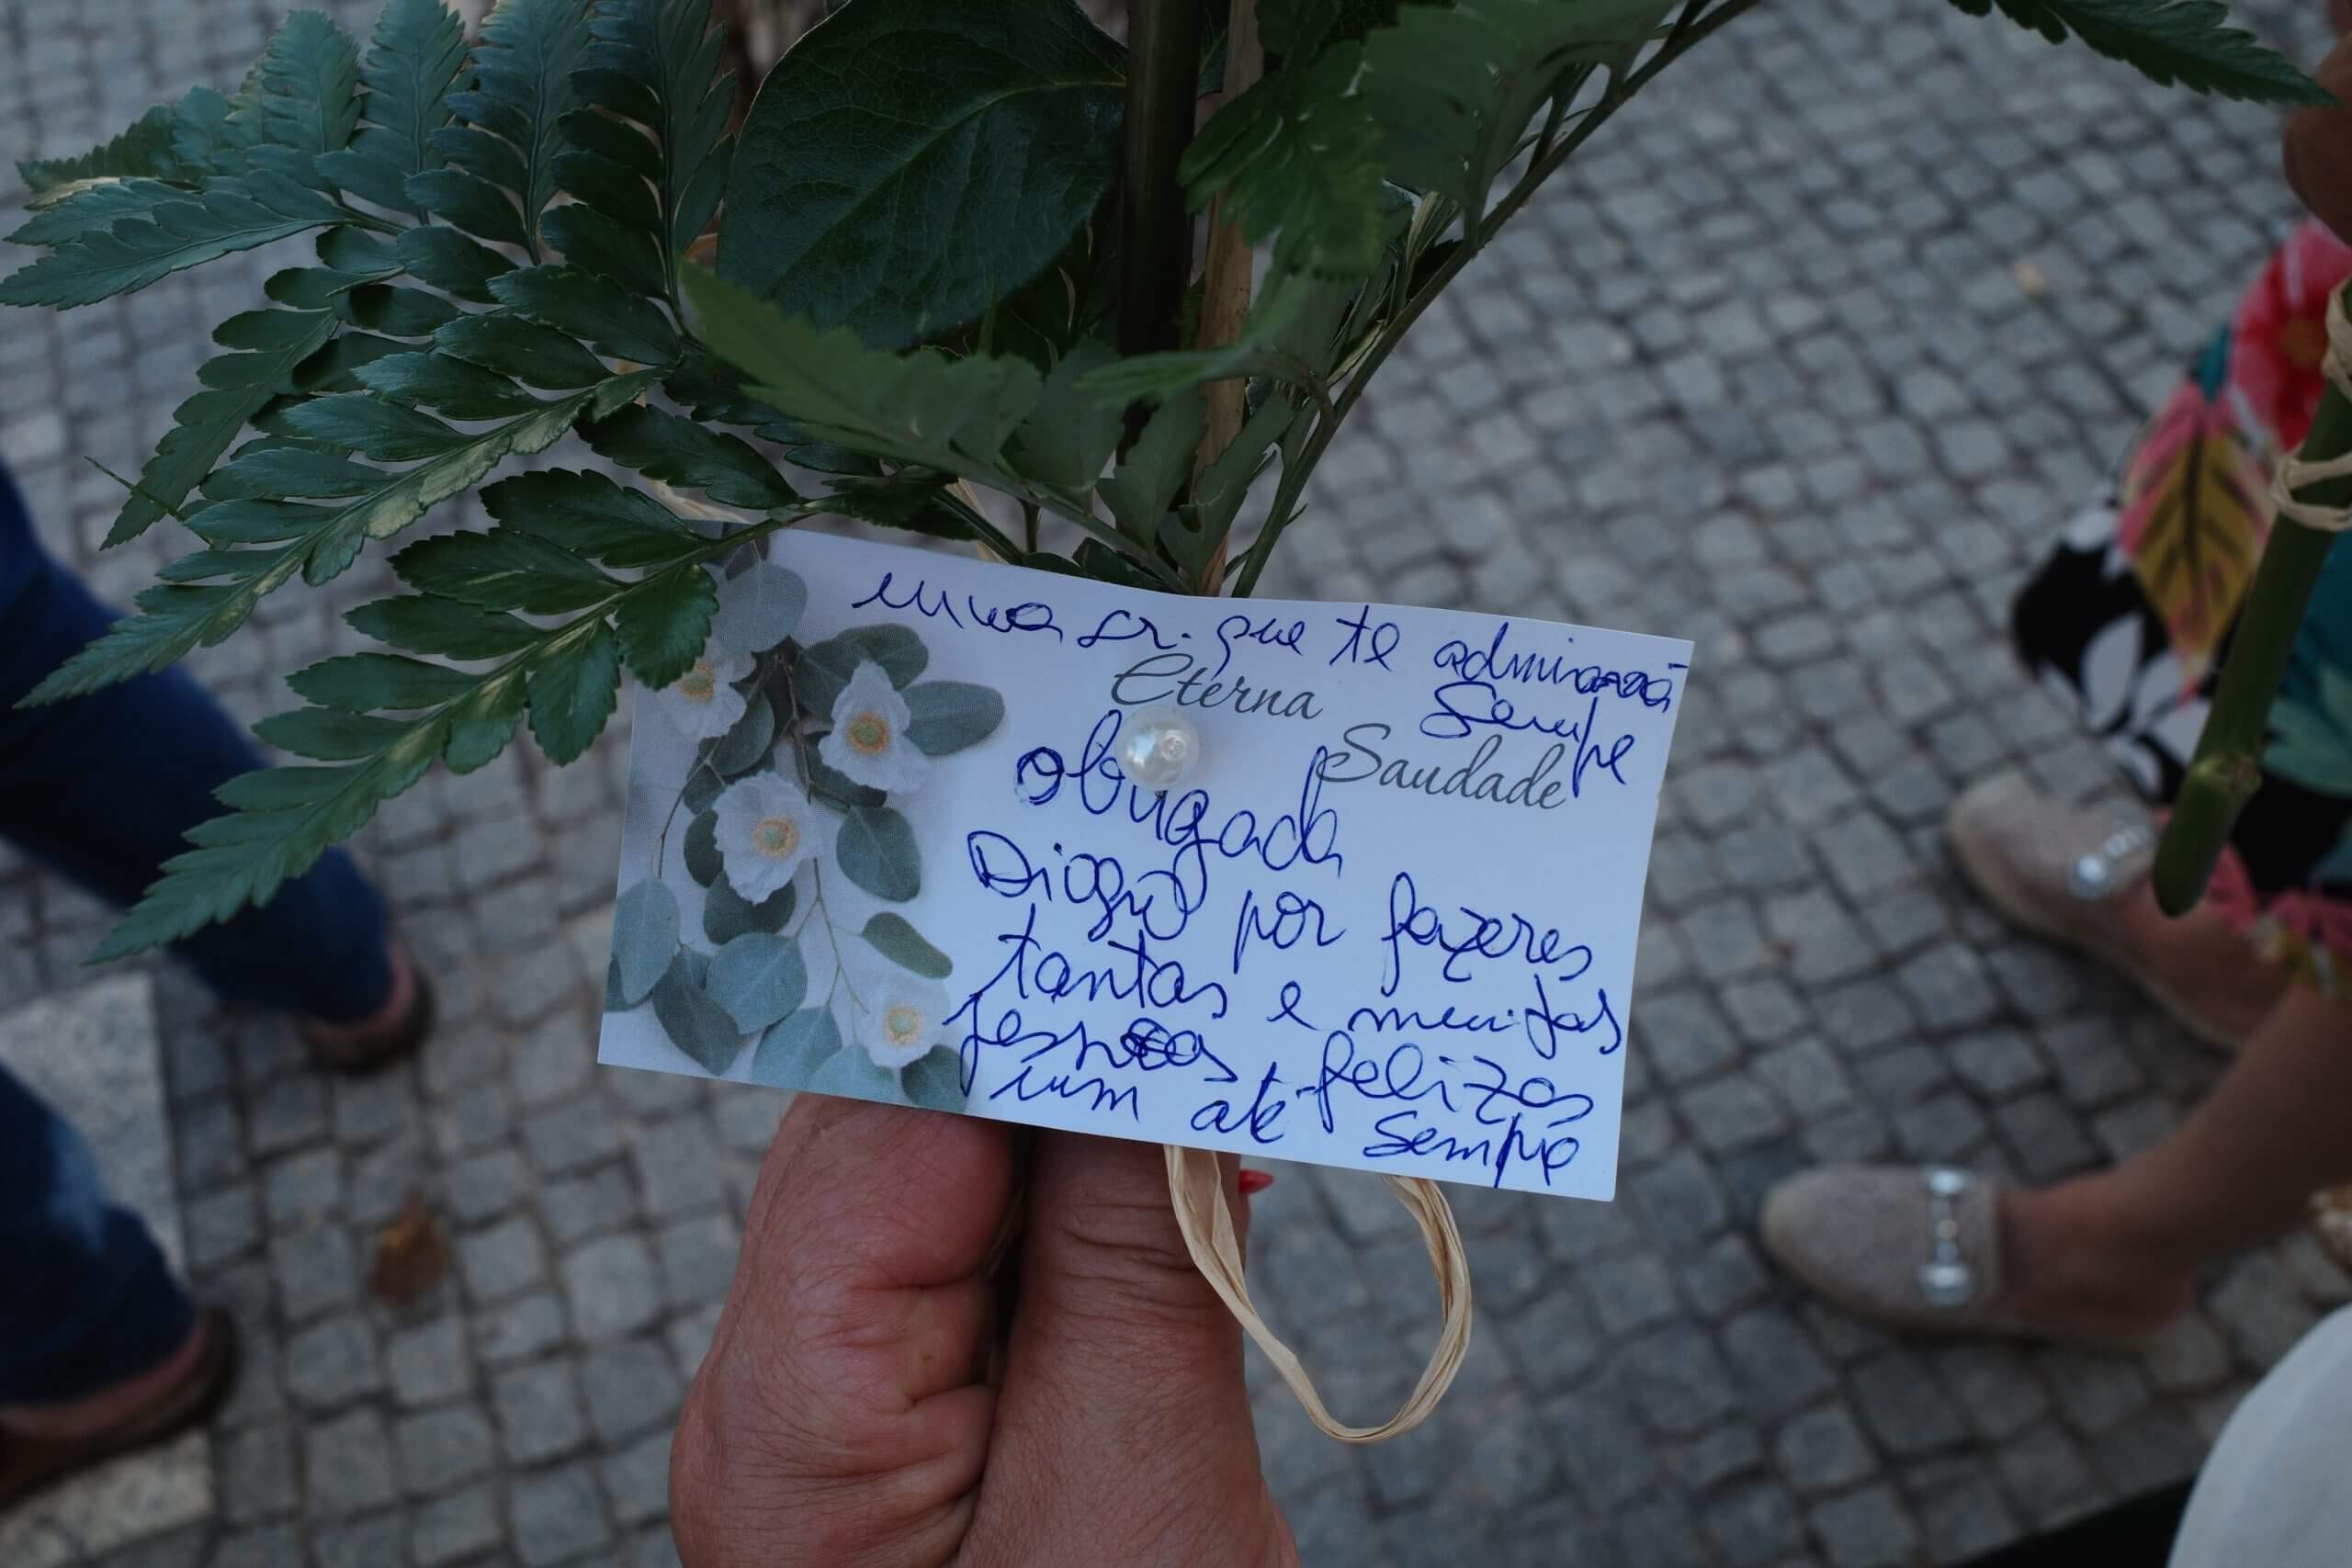 uma sr. que te admirará
Sempre
Eterna
Saudade
obrigada
Diogo por fazeres
tantas e muitas
pessoas felizes
um até sempre